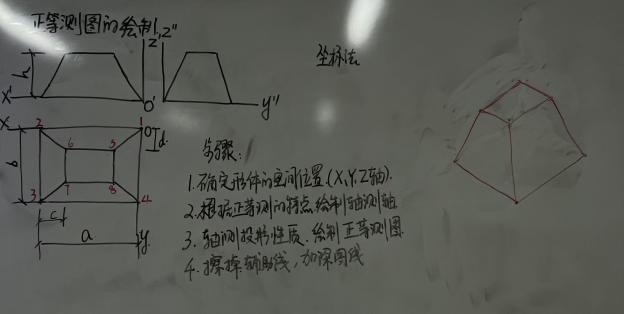 正等测图的绘制
Z' Z"
坐标法
h
X' O' y"
X 2 1 O
d
6 5
b
7 8
3 4
c
a y
步骤:
1.确定形体的空间位置(X、Y、Z轴).
2.根据正等测的特点,绘制轴测轴
3.轴测投影性质、绘制正等测图.
4.擦掉辅助线,加深图线